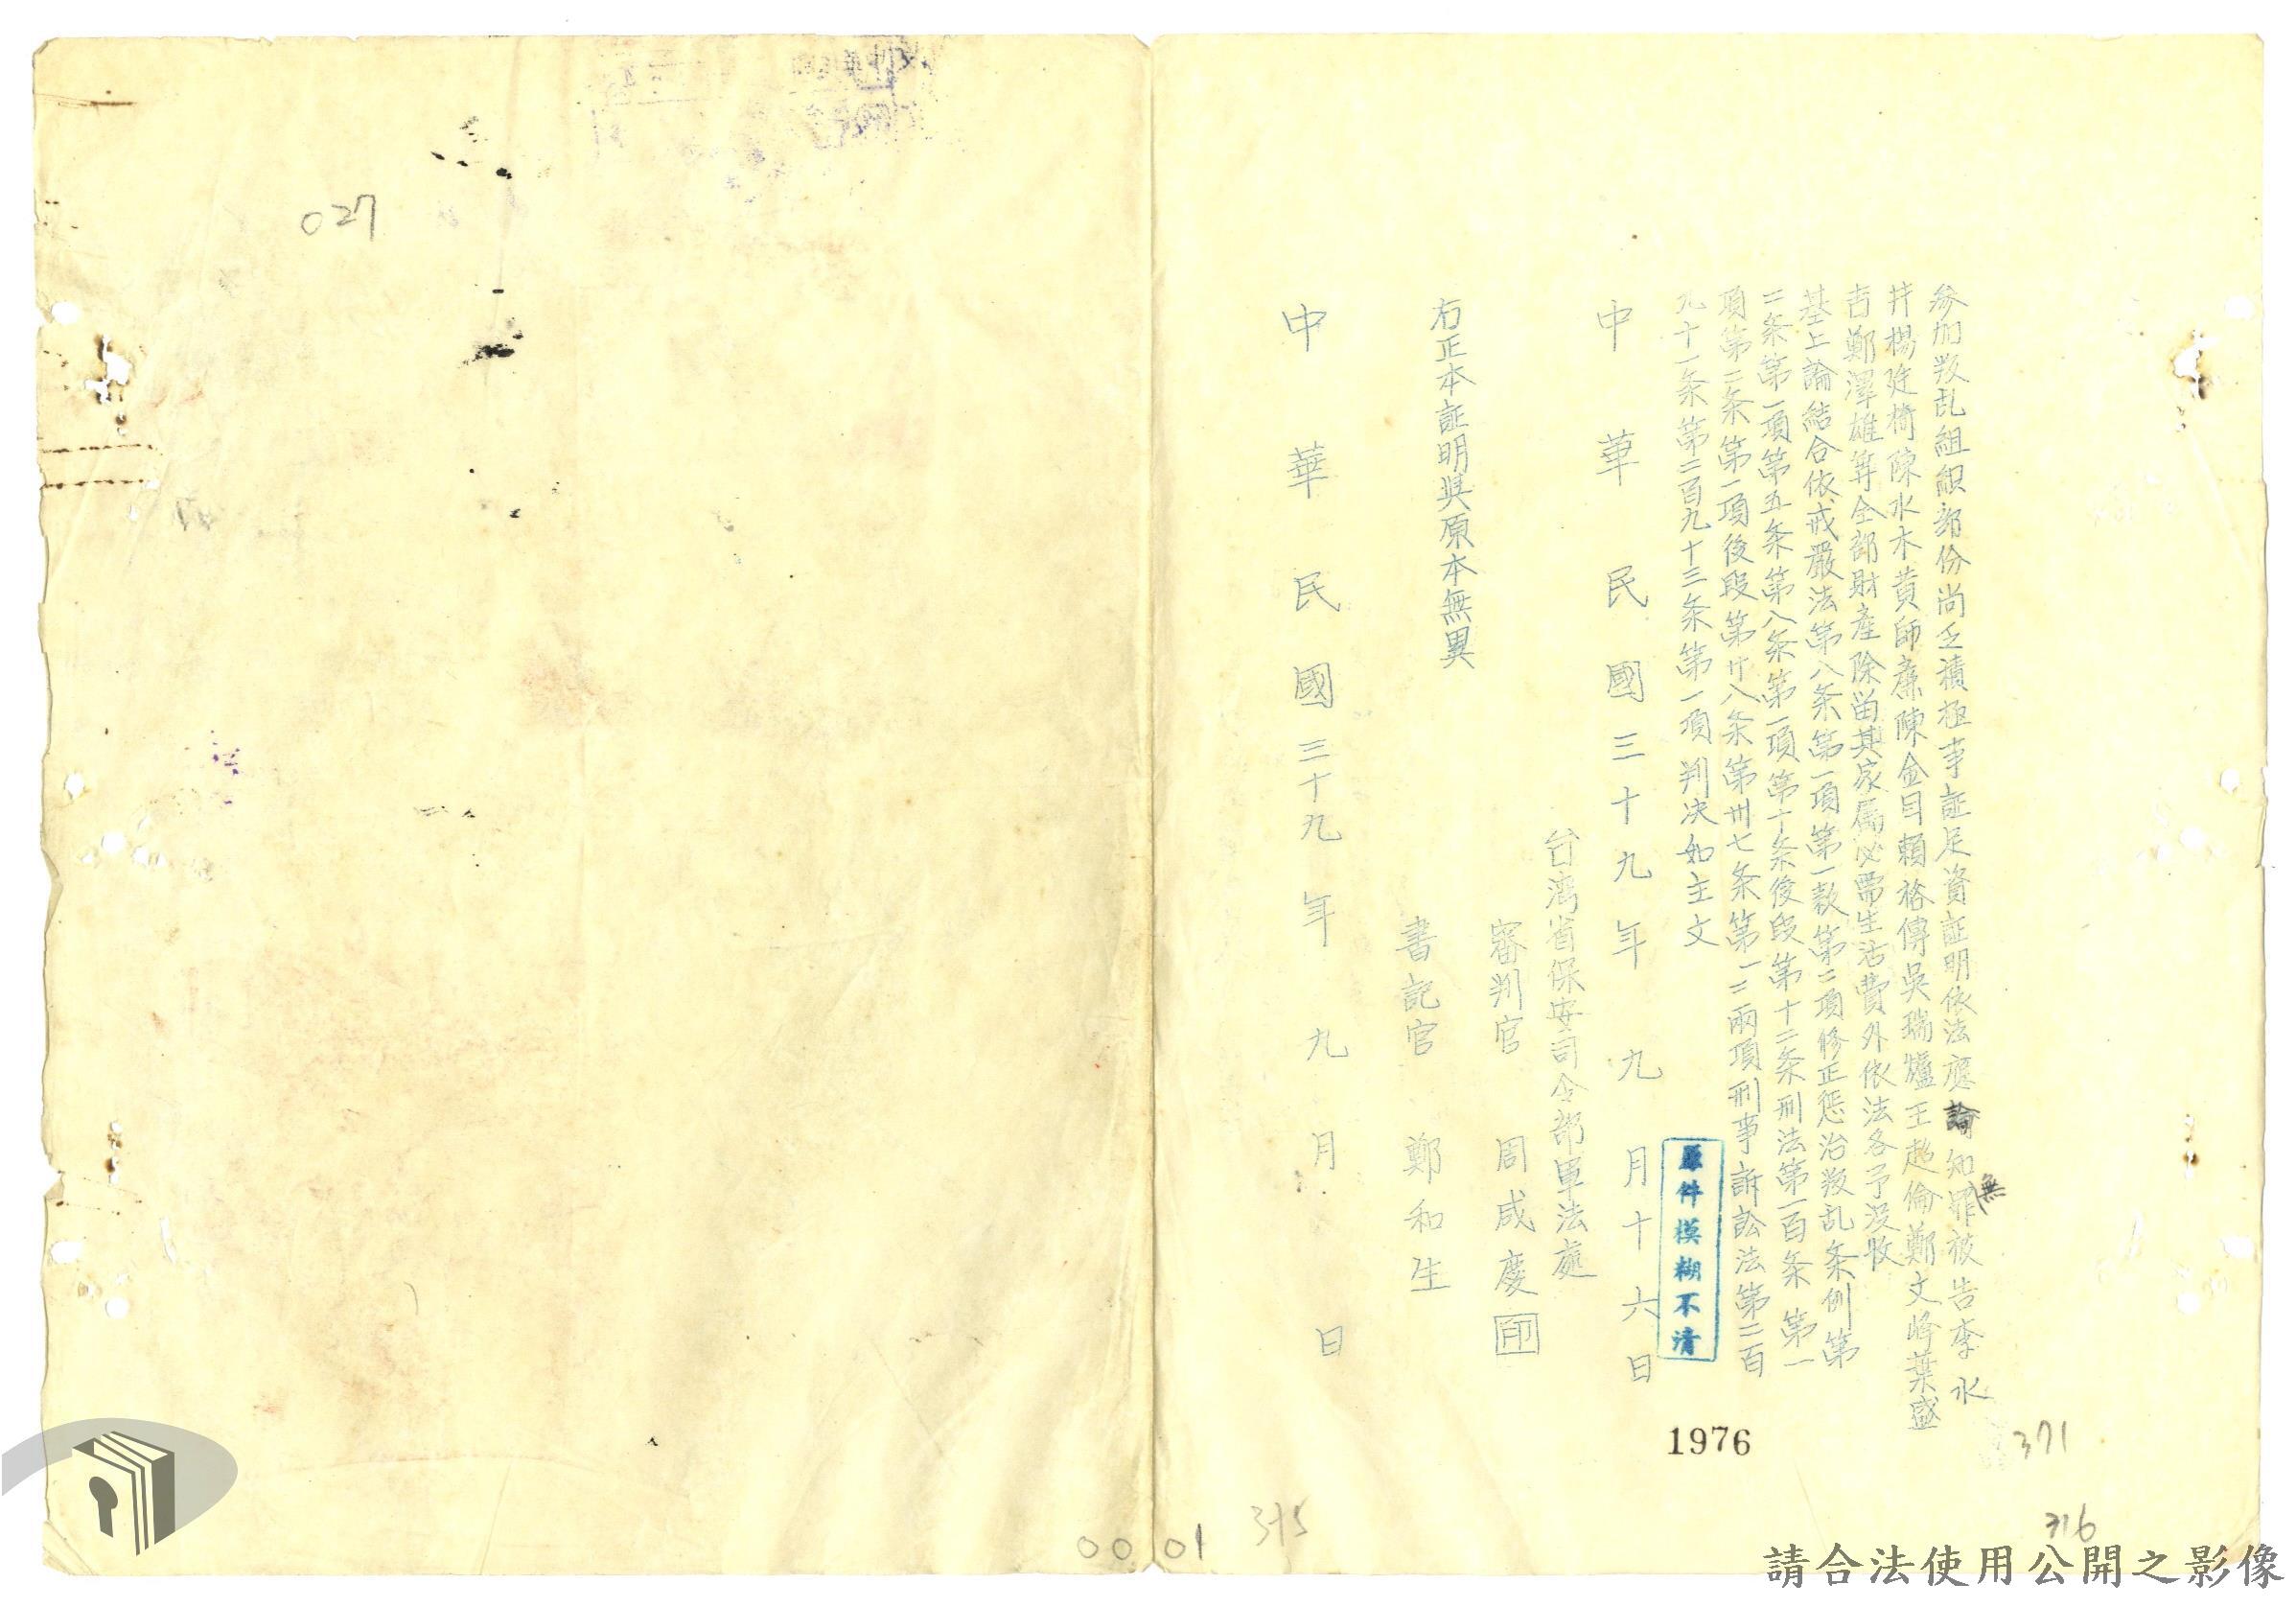 參加叛乱組織部份尚乏積極事証足資証明依法應諭知無罪被告李水
井楊廷椅陳水木黃師廉陳金目賴裕傳吳瑞爐王超倫鄭文峰葉盛
吉鄭澤雄等全部財產除留其家屬必需生活費外依法各予沒收
基上論結合依戒嚴法第八条第一項第一款第二項修正懲治叛乱条例第
二条第一項第五条第八条第一項第十条後段第十二条刑法第一百条第一
項第二条第一項後段第廿八条第卅七条第一二兩項刑事訴訟法第二百
九十一条第二百九十三条第一項判决如主文
中華民國三十九年九月十六日
台灣省保安司令部軍法處
審判官 周咸慶 印
右正本証明與原本無異
書記官 鄭和生
中華民國三十九年 九月 日
原件模糊不清
1976
371
316
315
00 01
027
請合法使用公開之影像